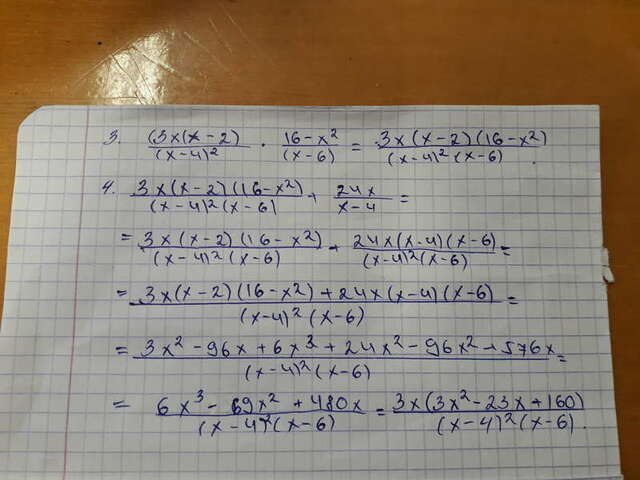 3. (3x(x-2)/(x-4)² · 16-x²/(x-6) = 3x(x-2)(16-x²)/(x-4)²(x-6).
4. 3x(x-2)(16-x²)/(x-4)²(x-6) + 24x/x-4 =
= 3x(x-2)(16-x²)/(x-4)²(x-6) + 24x(x-4)(x-6)/(x-4)²(x-6) =
= 3x(x-2)(16-x²)+24x(x-4)(x-6)/(x-4)²(x-6) =
= 3x²-96x+6x³+24x²-96x²+576x/(x-4)²(x-6) =
= 6x³-69x²+480x/(x-4)²(x-6) = 3x(3x²-23x+160)/(x-4)²(x-6).